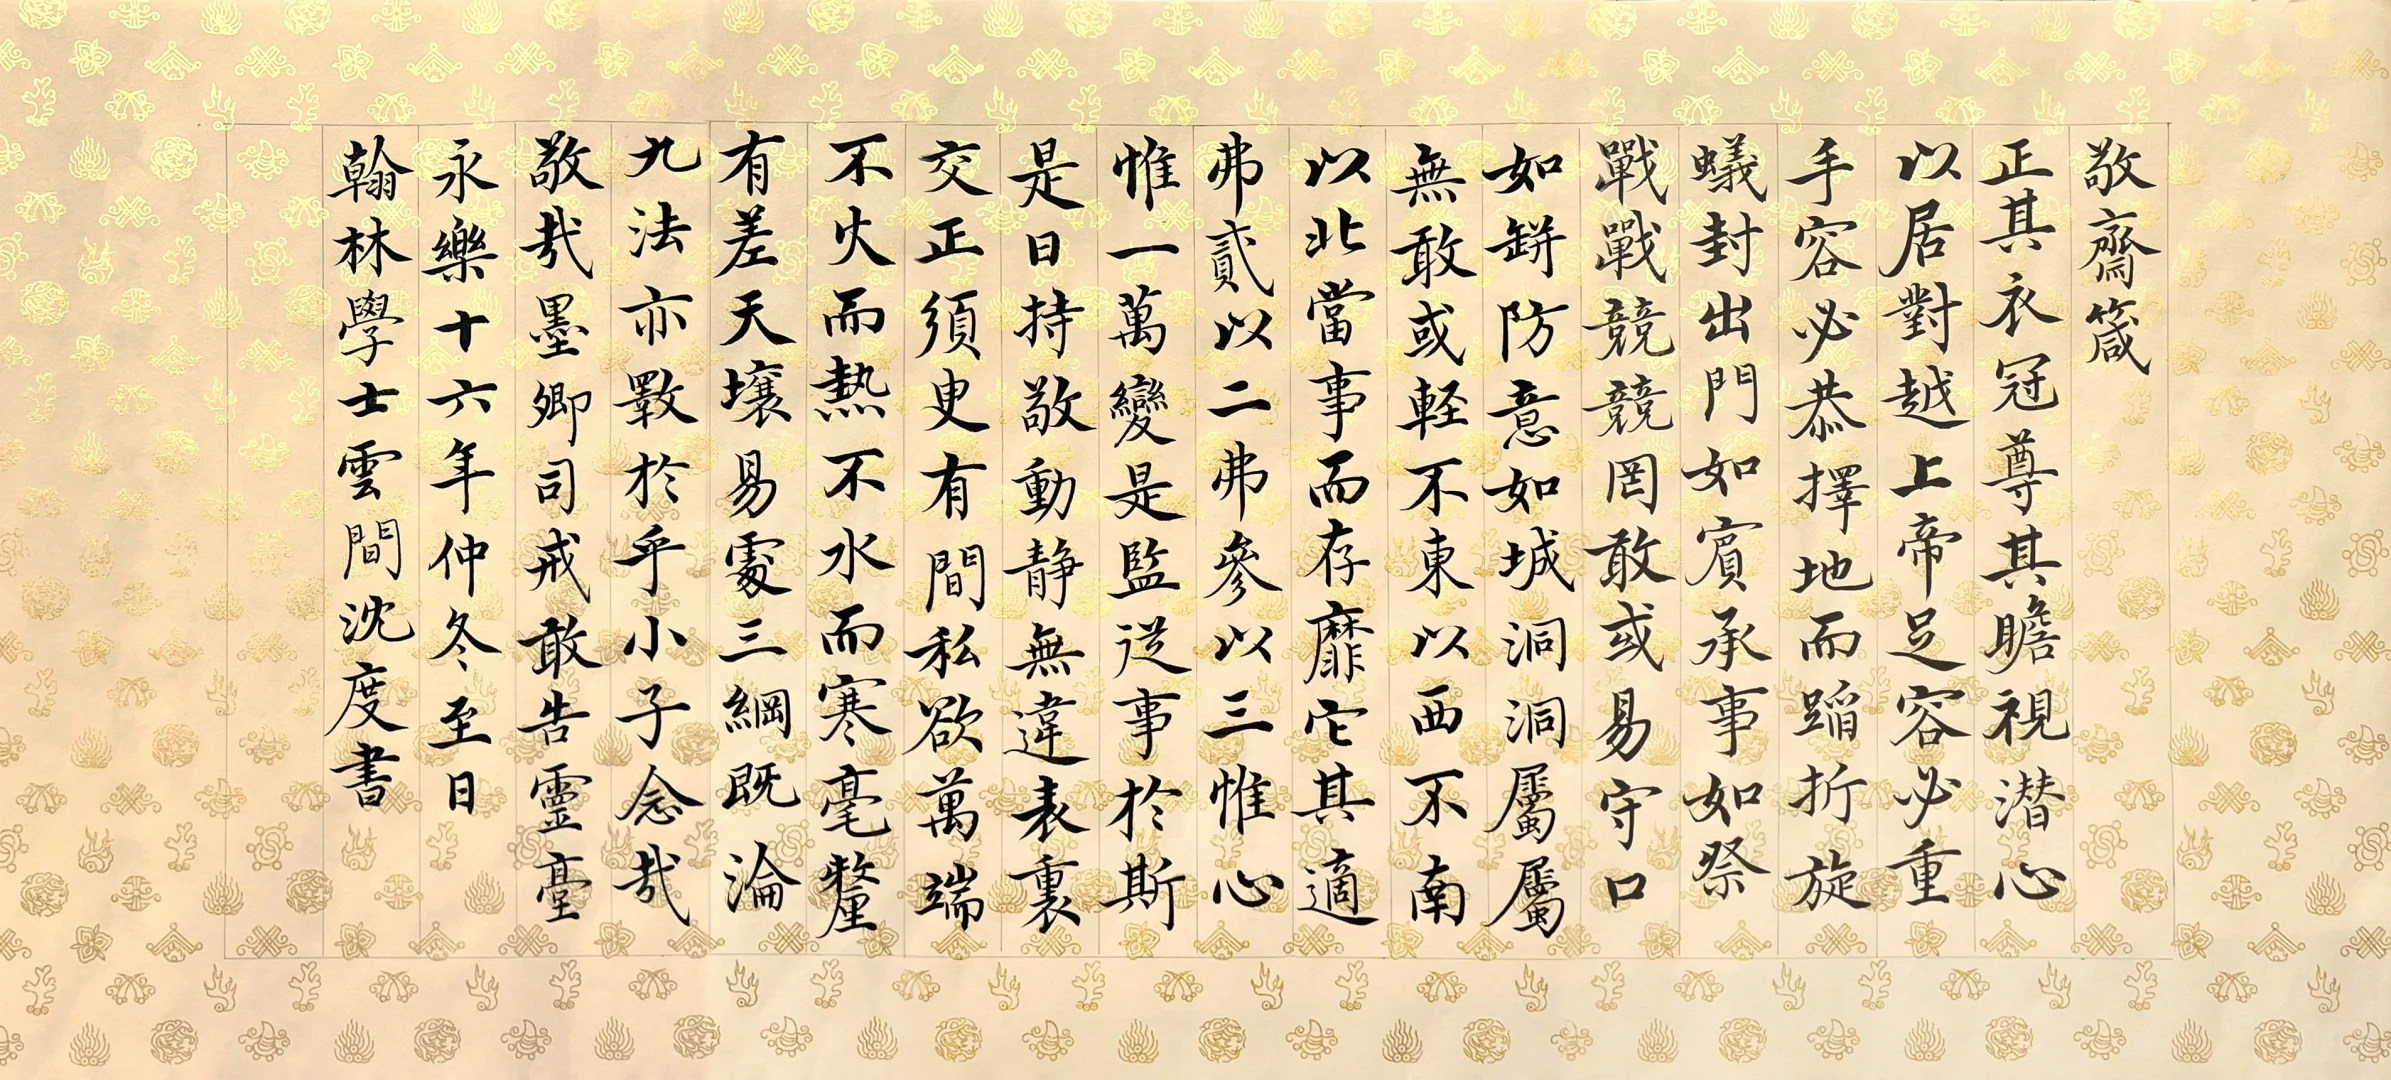 敬齋箴
正其衣冠尊其瞻視潜心
以居對越上帝足容必重
手容必恭擇地而蹈折旋
蟻封出門如賓承事如祭
戰戰競競罔敢或易守口
如缾防意如城洞洞屬屬
無敢或軽不東以西不南
以北當事而存靡它其適
弗貳以二弗參以三惟心
惟一萬變是監従事於斯
是曰持敬動静無違表裏
交正須臾有間私欲萬端
不火而熱不水而寒毫釐
有差天壤易處三綱既淪
九法亦斁於乎小子念哉
敬哉墨卿司戒敢告靈臺
永樂十六年仲冬至日
翰林學士雲間沈度書